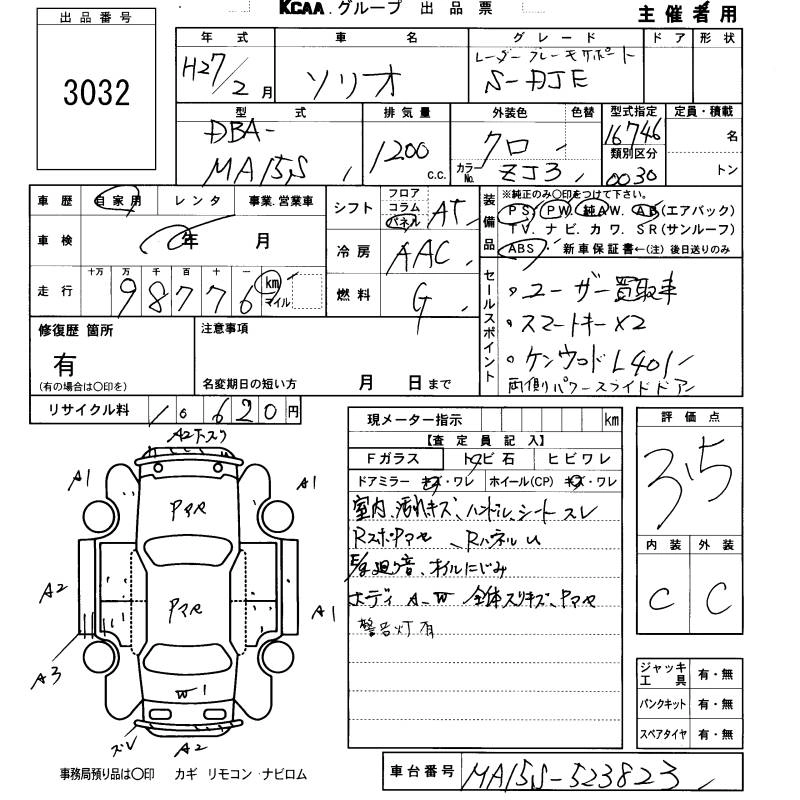 出品番号
3032
KCAA.グループ 出品票
主催者用
年式 車名 グレード ドア 形状
H27/2月 ソリオ レーダーブレーキサポート
S-DJE
型式 排気量 外装色 色替 型式指定 定員・積載
DBA-
MA15S 1200 c.c. クロ カラーNo. ZJ3 16746 名
類別区分
0030 トン
車歴 自家用 レンタ 事業.営業車
シフト フロア コラム パネル AT
車検 年 月
冷房 AAC
走行 十万 万 千 百 十 一
98776 km マイル
燃料 G
装備品
※純正のみ○印をつけて下さい。
PS. PW. 純AW. AB(エアバック)
TV. ナビ. カワ. SR(サンルーフ)
ABS 新車保証書←(注)後日送りのみ
セールスポイント
・ユーザー買取車
・スマートキー×2
・ケンウッド L401
両側パワースライドドア
修復歴 箇所
有
(有の場合は○印を)
注意事項
名変期日の短い方 月 日まで
リサイクル料 10620円
現メーター指示 km
【査定員記入】
Fガラス トビ石 ヒビワレ
ドアミラー キズ・ワレ ホイール(CP) キズ・ワレ
室内、汚れキズ、ハンドル、シートスレ
RスポPマセ、Rパネル U
E/g廻り音、オイルにじみ
ボディ A-W 全体スリキズ、Pマセ
警告灯有
評価点
3.5
内装 外装
C C
ジャッキ 工具 有・無
パンクキット 有・無
スペアタイヤ 有・無
A2下スリ
A1
A1
Pマセ
A2
Pマセ
A1
A3
W1
スレ
A2
事務局預り品は○印 カギ リモコン・ナビロム
車台番号 MA15S-523823